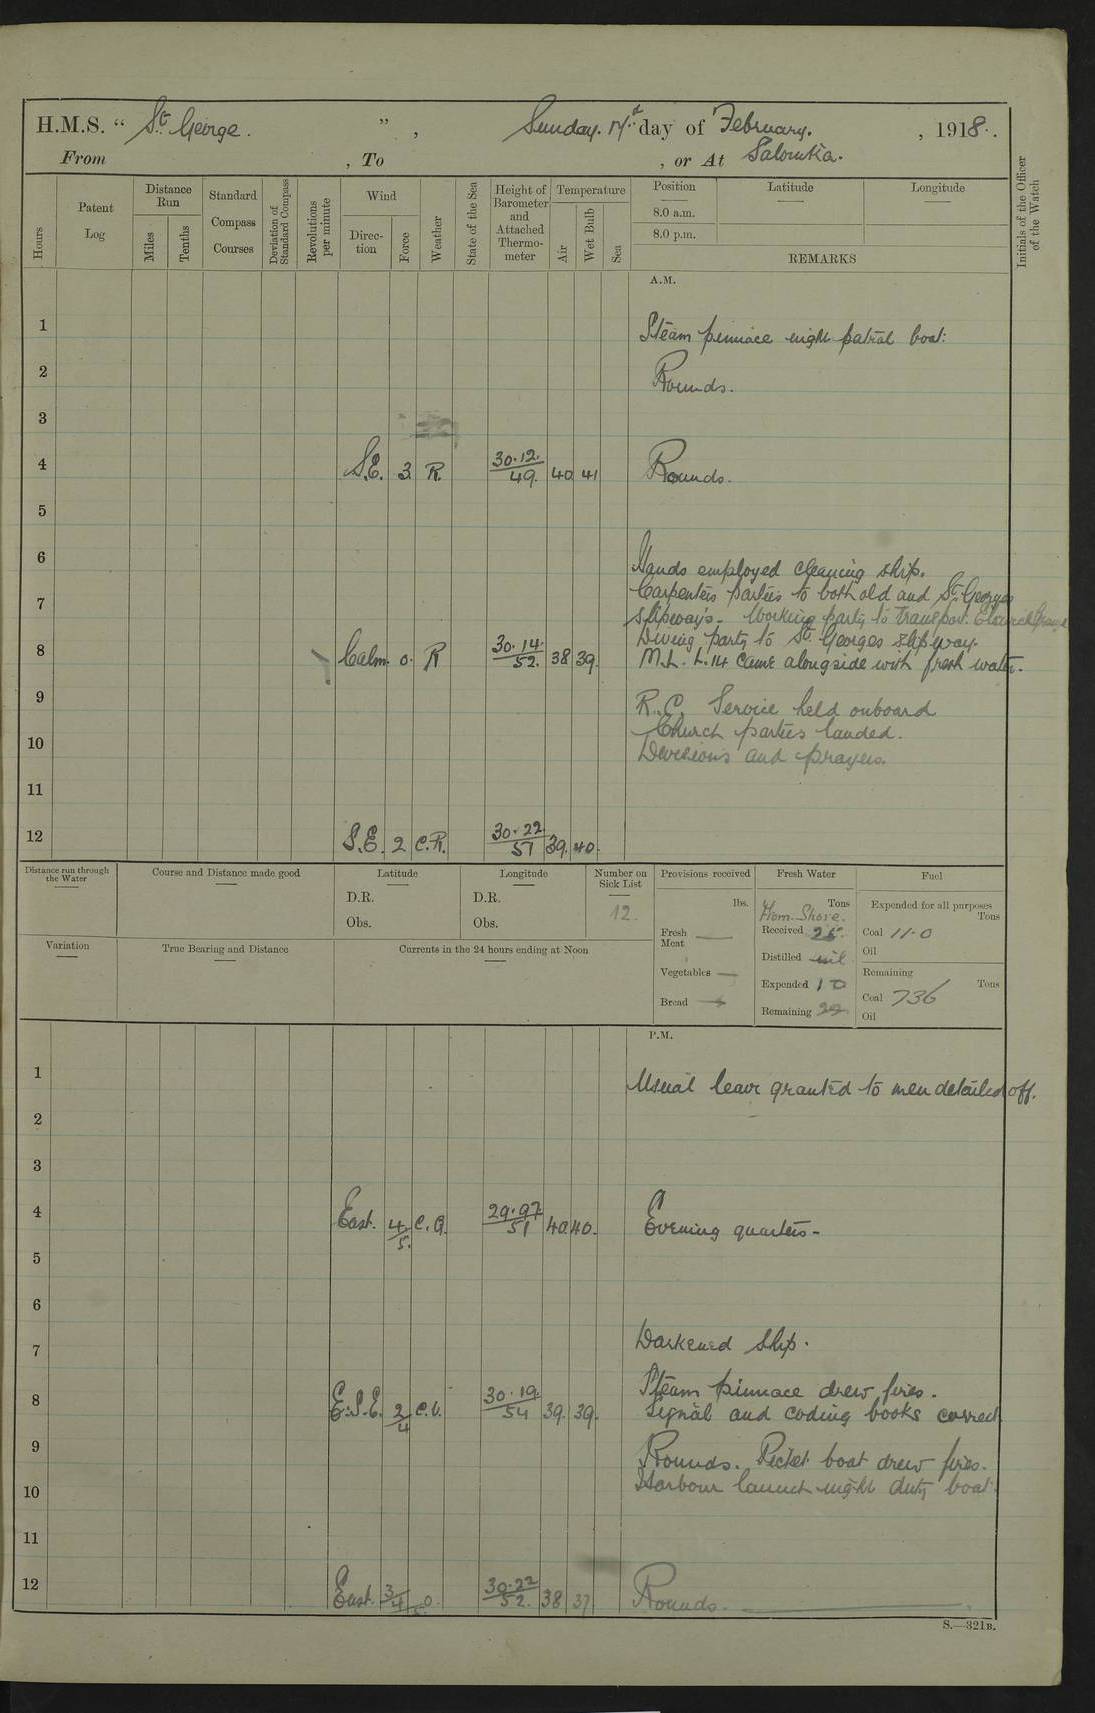 H.M.S. " St George. " , Sunday. 17th day of February. , 1918.
From , To , or At Salonika.
Hours
Patent Log
Distance Run
Miles
Tenths
Standard Compass Courses
Deviation of Standard Compass
Revolutions per minute
Wind
Direction
Force
Weather
State of the Sea
Height of Barometer and Attached Thermometer
Temperature
Air
Wet Bulb
Sea
Position
8.0 a.m.
8.0 p.m.
Latitude
Longitude
REMARKS
Initials of the Officer of the Watch
A.M.
1 Steam pinnace night patrol boat.
2 Rounds.
3
4 S.E. 3 R. 30.12. 49. 40 41 Rounds.
5
6 Hands employed cleaning ship.
Carpenters parties to both old and St Georges
7 slipways. Working party to Transport.
Diving party to St Georges slipway.
8 Calm. 0. R 30.14. 52. 38 39. M.L. L.14 came alongside with fresh water.
9 R.C. Service held onboard
Church parties landed.
10 Divisions and prayers.
11
12 S.E. 2 C.R. 30.22. 51 39. 40.
Distance run through the Water
Course and Distance made good
Latitude
D.R.
Obs.
Longitude
D.R.
Obs.
Number on Sick List
12.
Provisions received
lbs.
Fresh Meat
Vegetables
Bread
Fresh Water
Tons
From Shore.
Received 25.
Distilled nil
Expended 10
Remaining
Fuel
Expended for all purposes
Tons
Coal 11.0
Oil
Remaining
Tons
Coal 736
Oil
Variation
True Bearing and Distance
Currents in the 24 hours ending at Noon
P.M.
1 Usual leave granted to men detailed off.
2
3
4 East. 4/5. C. 29.97 51 40. 40. Evening quarters.
5
6
7 Darkened ship.
8 E.S.E. 2/4 C. 30.19. 54 39. 39. Steam pinnace drew fires.
Signal and coding books correct
9 Rounds. Picket boat drew fires.
10 Harbour launch night duty boat.
11
12 East. 3/4 30.22 52. 38 37 Rounds.
S.—321B.